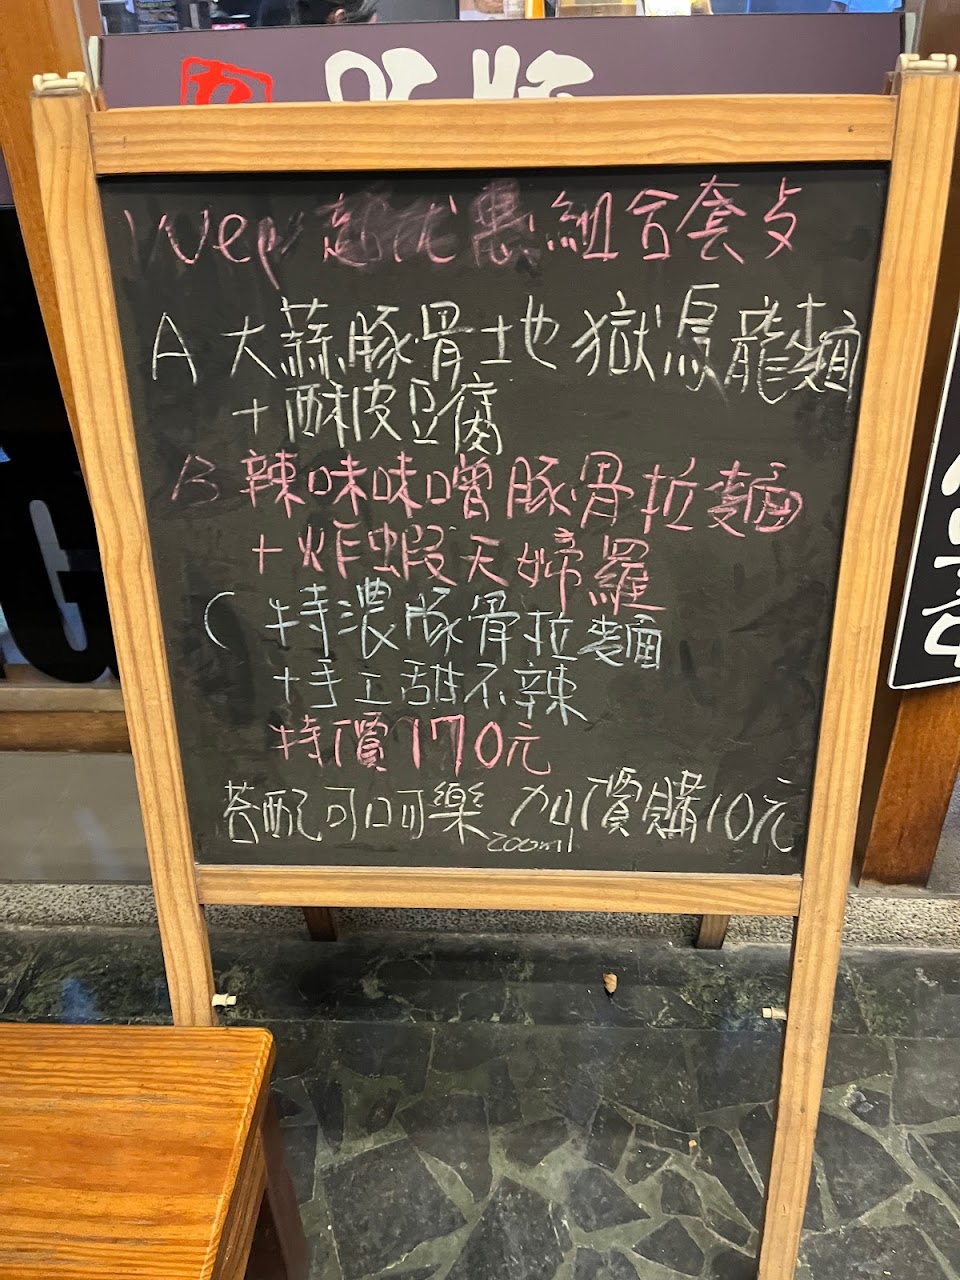 Wep 超优惠組合套歺
A 大蒜豚骨地獄烏龍麵
+酥皮豆腐
B 辣味味噌豚骨拉麵
+炸蝦天婦羅
C 特濃豚骨拉麵
+手工甜不辣
特價170元
荅配可口可樂 加價購10元
200ml